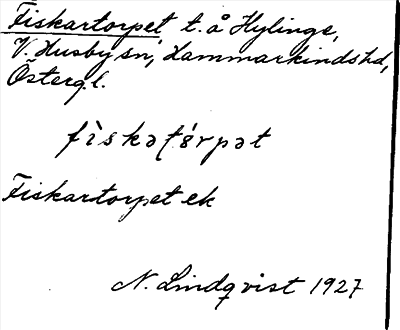 Fiskartorpet t. å Hylinge,
V. Husby sn, Hammarkinds hd,
Östergl.
fìskaʈórpət
Fiskartorpet ek
N. Lindqvist 1927